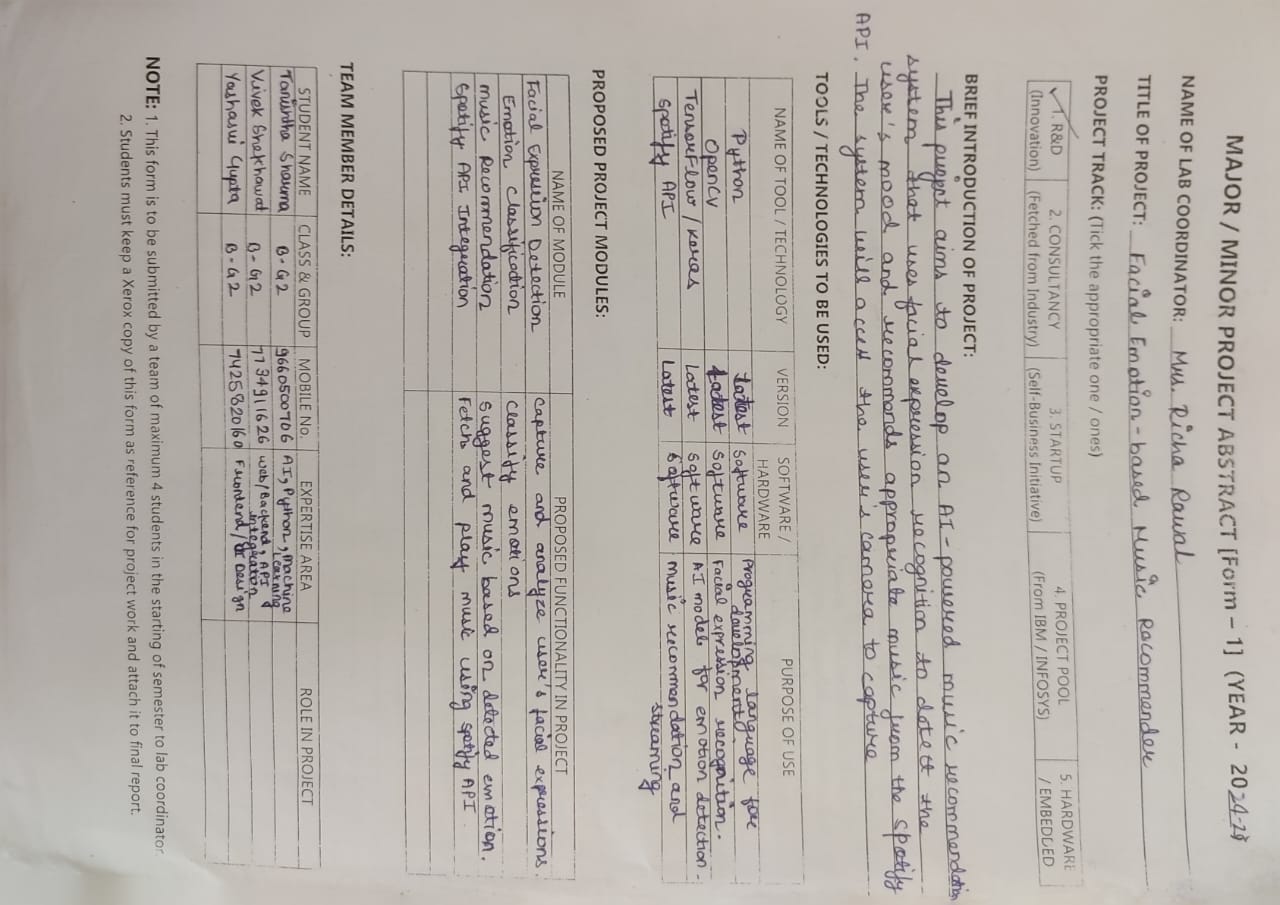 MAJOR / MINOR PROJECT ABSTRACT [Form – 1] (YEAR - 2024-25
NAME OF LAB COORDINATOR: Mrs. Richa Rawal
TITLE OF PROJECT: Facial Emotion-based Music Recommender
PROJECT TRACK: (Tick the appropriate one / ones)
1. R&D 2. CONSULTANCY 3. STARTUP 4. PROJECT POOL 5. HARDWARE
(Innovation) (Fetched from Industry) (Self-Business Initiative) (From IBM / INFOSYS) / EMBEDDED
BRIEF INTRODUCTION OF PROJECT:
This project aims to develop an AI-powered music recommendation
system that uses facial expression recognition to detect the
user's mood and recommends appropriate music from the spotify
API. The system will access the user's camera to capture
TOOLS / TECHNOLOGIES TO BE USED:
NAME OF TOOL / TECHNOLOGY VERSION SOFTWARE / HARDWARE PURPOSE OF USE
Python Latest Software Programming language for development
OpenCV Latest Software Facial expression recognition.
TensorFlow / Keras Latest Software AI model for emotion detection.
Spotify API Latest Software music recommendation and streaming
PROPOSED PROJECT MODULES:
NAME OF MODULE PROPOSED FUNCTIONALITY IN PROJECT
Facial Expression Detection Capture and analyze user's facial expressions.
Emotion Classification Classify emotions
music Recommendation Suggest music based on detected emotion.
Spotify API Integration Fetch and play music using spotify API.
TEAM MEMBER DETAILS:
STUDENT NAME CLASS & GROUP MOBILE No. EXPERTISE AREA ROLE IN PROJECT
Tanishtha Sharma B-G2 9660500706 AI, Python, Machine Learning
Vivek Shekhawat B-G2 7734911626 web/Backend, API Integration
Yashasvi Gupta B-G2 7425820160 Frontend/ Design
NOTE: 1. This form is to be submitted by a team of maximum 4 students in the starting of semester to lab coordinator.
2. Students must keep a Xerox copy of this form as reference for project work and attach it to final report.